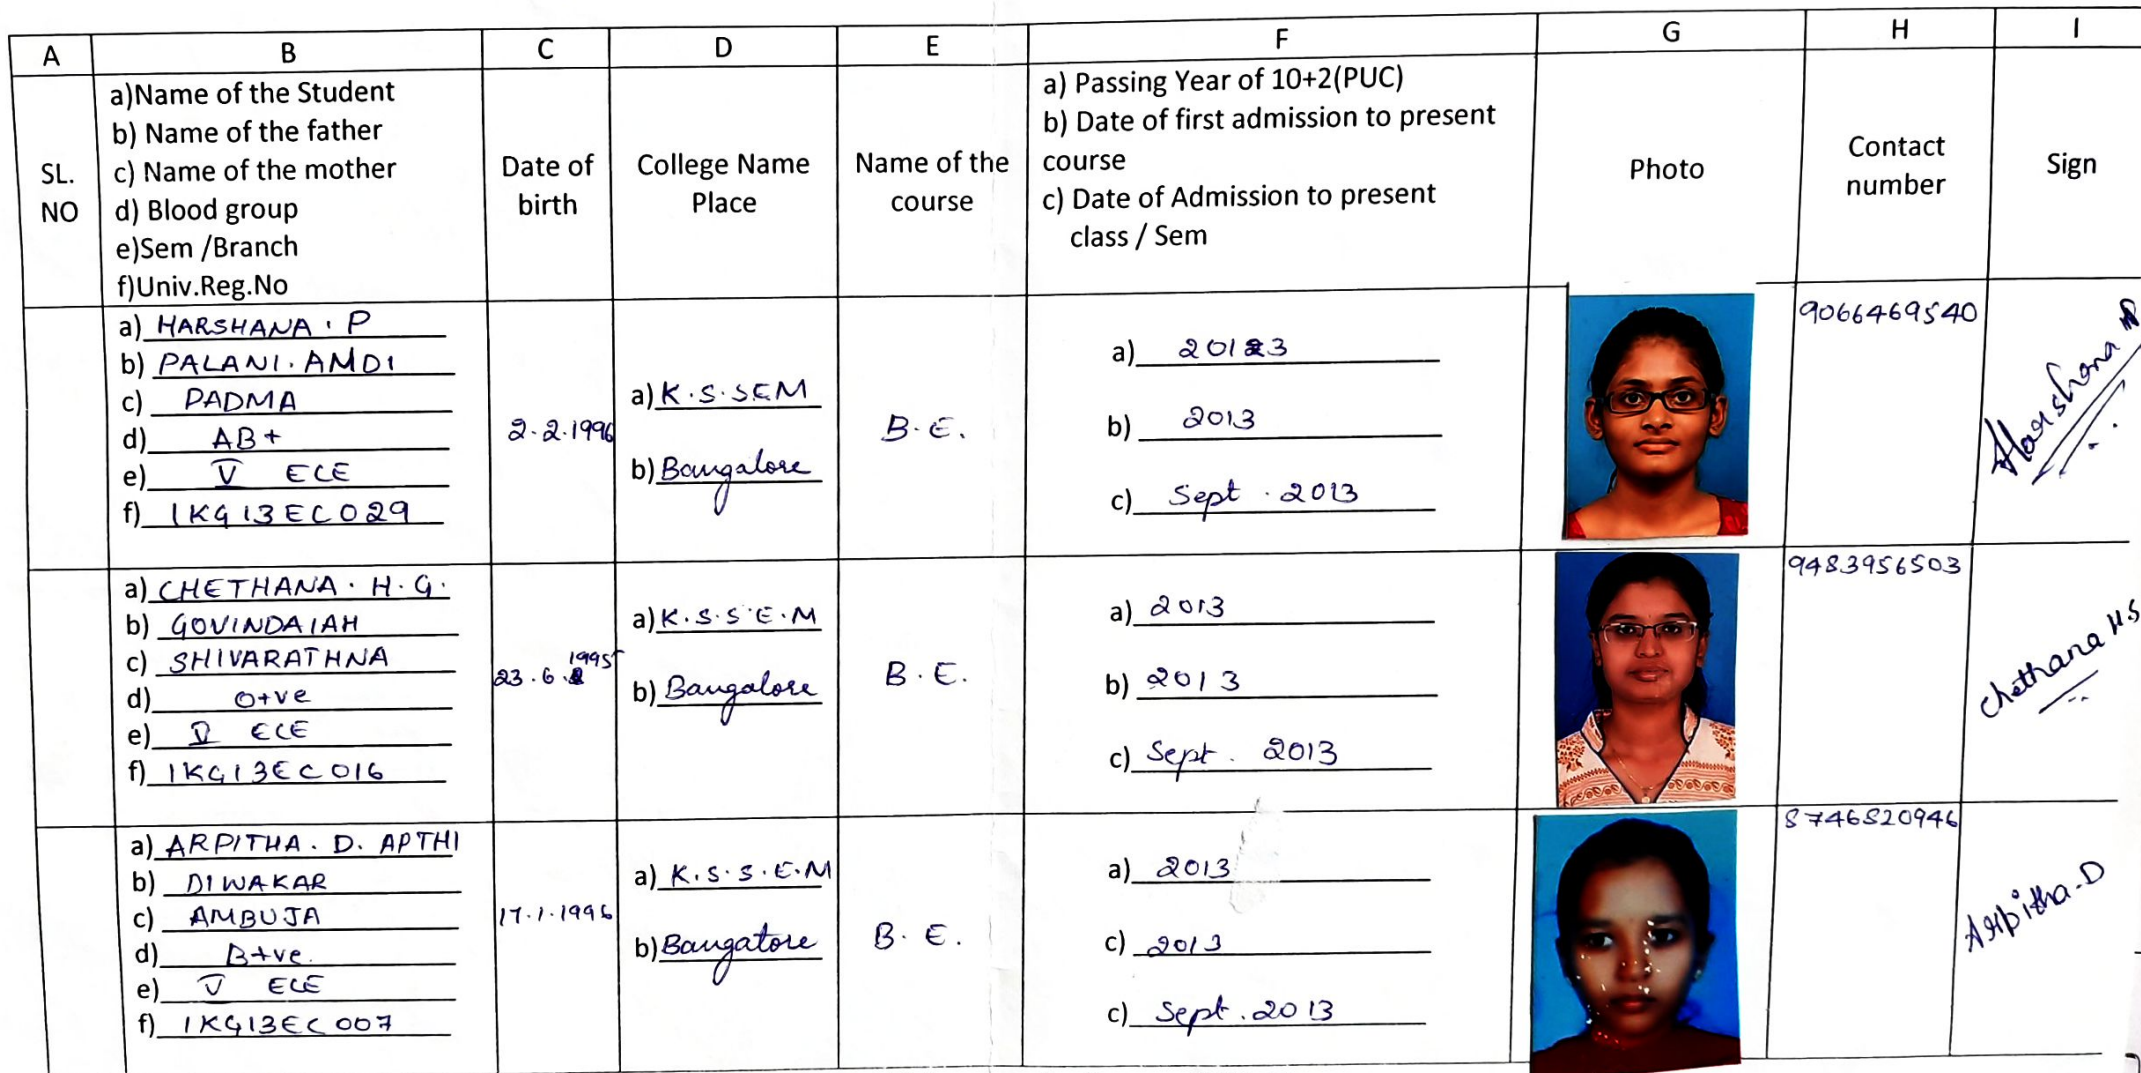 A B C D E F G H I
SL.
NO
a)Name of the Student
b) Name of the father
c) Name of the mother
d) Blood group
e)Sem /Branch
f)Univ.Reg.No
Date of
birth
College Name
Place
Name of the
course
a) Passing Year of 10+2(PUC)
b) Date of first admission to present
course
c) Date of Admission to present
class / Sem
Photo
Contact
number
Sign
a) HARSHANA . P
b) PALANI. AMDI
c) PADMA
d) AB+
e) V ECE
f) 1KG13EC029
2.2.1996
a) K.S.SEM
b) Bangalore
B.E.
a) 2013
b) 2013
c) Sept . 2013
9066469540
Harshana P
a) CHETHANA . H.G.
b) GOVINDAIAH
c) SHIVARATHNA
d) O+ve
e) V ECE
f) 1KG13EC016
23.6.1995
a) K.S.S.E.M
b) Bangalore
B.E.
a) 2013
b) 2013
c) Sept . 2013
9483956503
Chethana H.G
a) ARPITHA . D. APTHI
b) DIWAKAR
c) AMBUJA
d) B+ve.
e) V ECE
f) 1KG13EC007
17.1.1996
a) K.S.S.E.M
b) Bangalore
B.E.
a) 2013
c) 2013
c) Sept . 2013
8746820946
Arpitha.D